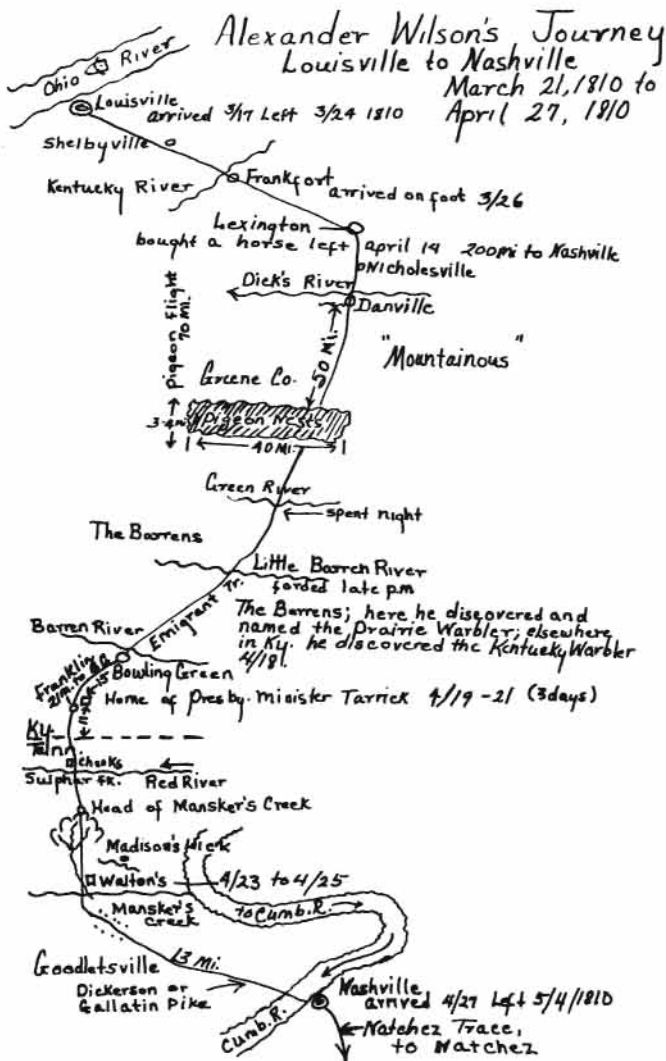 Alexander Wilson's Journey
Louisville to Nashville
March 21, 1810 to
April 27, 1810
Ohio River
Louisville
arrived 3/17 Left 3/24 1810
Shelbyville
Kentucky River
Frankfort
arrived on foot 3/26
Lexington
bought a horse left april 14 200 mi to Nashville
Nicholesville
Dick's River
Danville
Pigeon flight
70 Mi.
50 Mi.
"Mountainous"
Greene Co.
Pigeon Nests
40 Mi.
Green River
spent night
The Barrens
Little Barren River
forded late p.m
Emigrant Tr.
The Barrens; here he discovered and
named the Prairie Warbler; elsewhere
in Ky. he discovered the Kentucky Warbler
4/18/.
Barren River
Bowling Green
Franklin
Home of Presby. Minister Tarrick 4/19 - 21 (3 days)
Ky.
Tenn
Cheeks
Sulphur Fk. Red River
Head of Mansker's Creek
Madison's Lick
Walton's 4/23 to 4/25
to Cumb. R.
Mansker's
Creek
13 Mi.
Goodletsville
Dickerson or
Gallatin Pike
Cumb. R.
Nashville
arrived 4/27 Left 5/4/1810
Natchez Trace,
to Natchez